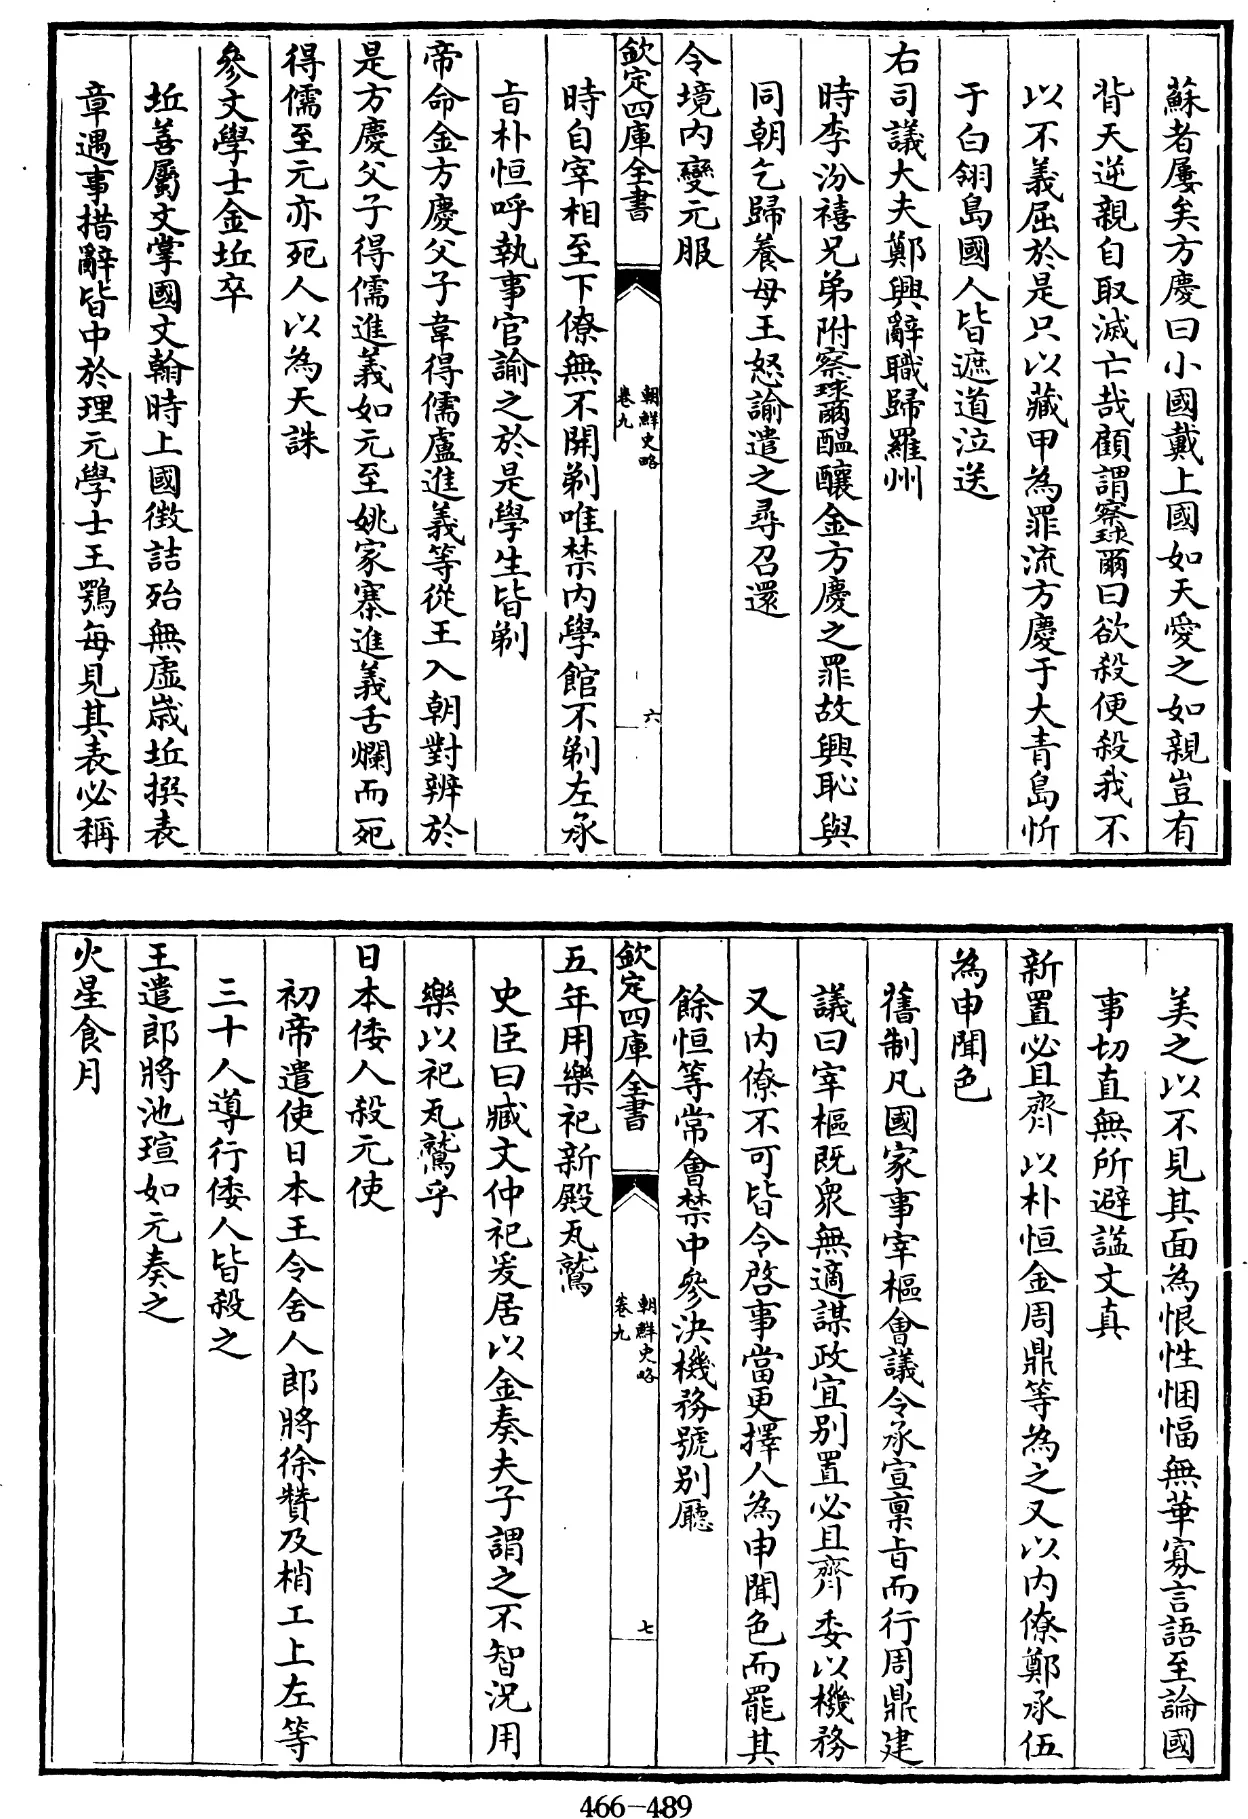 蘇者屢矣方慶曰小國戴上國如天愛之如親豈有
背天逆親自取滅亡哉顧謂察球爾曰欲殺便殺我不
以不義屈於是只以藏甲為罪流方慶于大青島忻
于白翎島國人皆遮道泣送
右司議大夫鄭興辭職歸羅州
時李汾禧兄弟附察球爾醖釀金方慶之罪故興恥與
同朝乞歸養母王怒諭遣之尋召還
令境内變元服
欽定四庫全書
朝鮮史略
卷九
六
時自宰相至下僚無不開剃唯禁内學館不剃左承
旨朴恒呼執事官諭之於是學生皆剃
帝命金方慶父子韋得儒盧進義等從王入朝對辨於
是方慶父子得儒進義如元至姚家寨進義舌爛而死
得儒至元亦死人以為天誅
參文學士金坵卒
坵善屬文掌國文翰時上國徴詰殆無虛歳坵撰表
章遇事措辭皆中於理元學士王鶚每見其表必稱
美之以不見其面為恨性悃愊無華寡言語至論國
事切直無所避謚文真
新置必且齊以朴恒金周鼎等為之又以内僚鄭承伍
為申聞色
舊制凡國家事宰樞會議令承宣稟旨而行周鼎建
議曰宰樞既衆無適謀政宜别置必且齊委以機務
又内僚不可皆令啓事當更擇人為申聞色而罷其
餘恒等常會禁中參決機務號别廳
欽定四庫全書
朝鮮史略
卷九
七
五年用樂祀新殿瓦鷲
史臣曰臧文仲祀爰居以金奏夫子謂之不智況用
樂以祀瓦鷲乎
日本倭人殺元使
初帝遣使日本王令舍人郎將徐贊及梢工上左等
三十人導行倭人皆殺之
王遣郎將池瑄如元奏之
火星食月
466-489